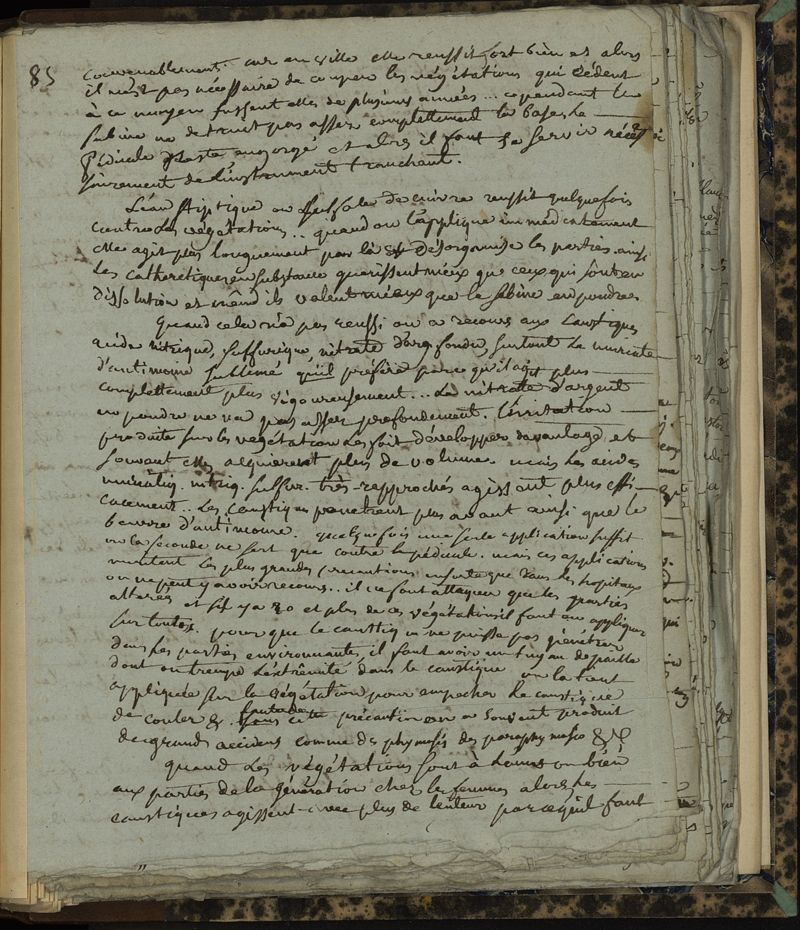 85
convenablement. car en ville elle reussit fort bien et alors
il n'est pas nécessaire de couper les végétations qui cèdent
à ce moyen fussent elles de plusieurs années... cependant la
sabine ne detruit pas assez complettement la base, le
pédicule reste engorgé et alors il faut se servir néces
sairement de l'instrument tranchant.
L'eau stiptique ou de cuivre reussit quelquefois
contre les végétations.. quand on l'applique immediatement
elle agit plus longuement par là désorganise les parties. ainsi
les catheretiques en substance guerissent mieux que ceux qui sont en
dissolution et même ils valent mieux que la sabine en poudre
Quand cela n'a pas reussi on a recours aux caustiques
acide nitrique, sulfurique, nitrate d'arg. fondu, surtout le muriate
d'antimoine sublimé qu'il préfère parce qu'il agit plus
complettement plus vigoureusement... Le nitrate d'argent
en poudre ne va pas assez profondement. l'irritation
produite sur les vegetations les fait développer davantage et
souvent elles acquierent plus de volume. mais les acides
muriatiq. nitriq. sulfur. très-rapprochés agissent plus effi-
cacement.. Les caustiques penetrent plus avant ainsi que le
beurre d'antimoine. quelquefois une seule application suffit
ou la seconde ne sert que contre le pédicule. mais ces applications
méritent les plus grandes précautions ensorte que dans les hopitaux
on ne peut y avoir recours.. il ne faut attaquer que les parties
altérées et s'il y a 20 et plus de ces végétations il faut en appliquer
sur toutes. pour que le caustique ne puisse pas pénétrer
dans les parties environnantes, il faut avoir un tuyau de paille
dont on trempe l'extrêmité dans le caustique on la tient
appliquée sur la végétation pour empecher le caustique
de couler &. faute de cette précaution on a souvent produit
de grands accidens comme des phymosis des paraphymosis &c &c
quand les végétations sont à l'anus ou bien
aux parties de la génération chez les femmes alors les
caustiques agissent avec plus de lenteur parcequ'il faut